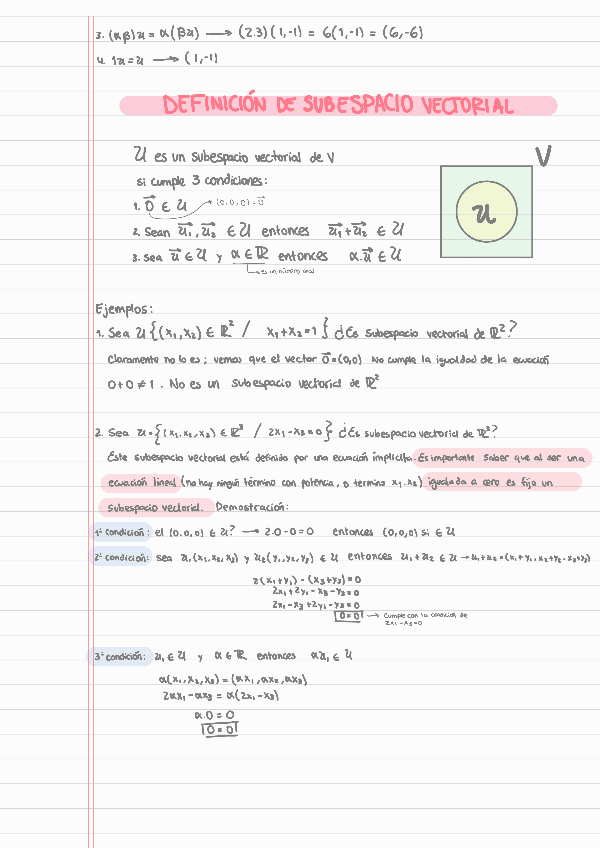 3. (αβ)u = α(βu) → (2.3)(1,-1) = 6(1,-1) = (6,-6)
4. 1u = u → (1,-1)
DEFINICIÓN DE SUBESPACIO VECTORIAL
U es un subespacio vectorial de V
si cumple 3 condiciones:
V
U
1. 0⃗ ∈ U → (0,0,0) = 0⃗
2. Sean u⃗₁, u⃗₂ ∈ U entonces u⃗₁+u⃗₂ ∈ U
3. sea u⃗ ∈ U y α ∈ ℝ entonces α.u⃗ ∈ U
es un número real
Ejemplos:
1. Sea U {(x₁,x₂) ∈ ℝ² / x₁+x₂=1} ¿Es subespacio vectorial de ℝ²?
Claramente no lo es; vemos que el vector 0⃗=(0,0) No cumple la igualdad de la ecuación
0+0≠1. No es un subespacio vectorial de ℝ²
2. Sea U={(x₁,x₂,x₃) ∈ ℝ³ / 2x₁-x₃=0} ¿Es subespacio vectorial de ℝ³?
Este subespacio vectorial está definido por una ecuación implícita. Es importante saber que al ser una
ecuación lineal (no hay ningún término con potencia, o termino x₁.x₂) igualada a cero es fijo un
subespacio vectorial. Demostración:
1° condición: el (0,0,0) ∈ U? → 2.0-0=0 entonces (0,0,0) si ∈ U
2° condición: sea u₁(x₁,x₂,x₃) y u₂(y₁,y₂,y₃) ∈ U entonces u₁+u₂ ∈ U → u₁+u₂=(x₁+y₁,x₂+y₂,x₃+y₃)
2(x₁+y₁)-(x₃+y₃)=0
2x₁+2y₁-x₃-y₃=0
2x₁-x₃+2y₁-y₃=0
0=0 → Cumple con la condición de
2x₁-x₃=0
3° condición: u₁ ∈ U y α ∈ ℝ entonces αu₁ ∈ U
α(x₁,x₂,x₃)=(αx₁,αx₂,αx₃)
2αx₁-αx₃ = α(2x₁-x₃)
α.0=0
0=0